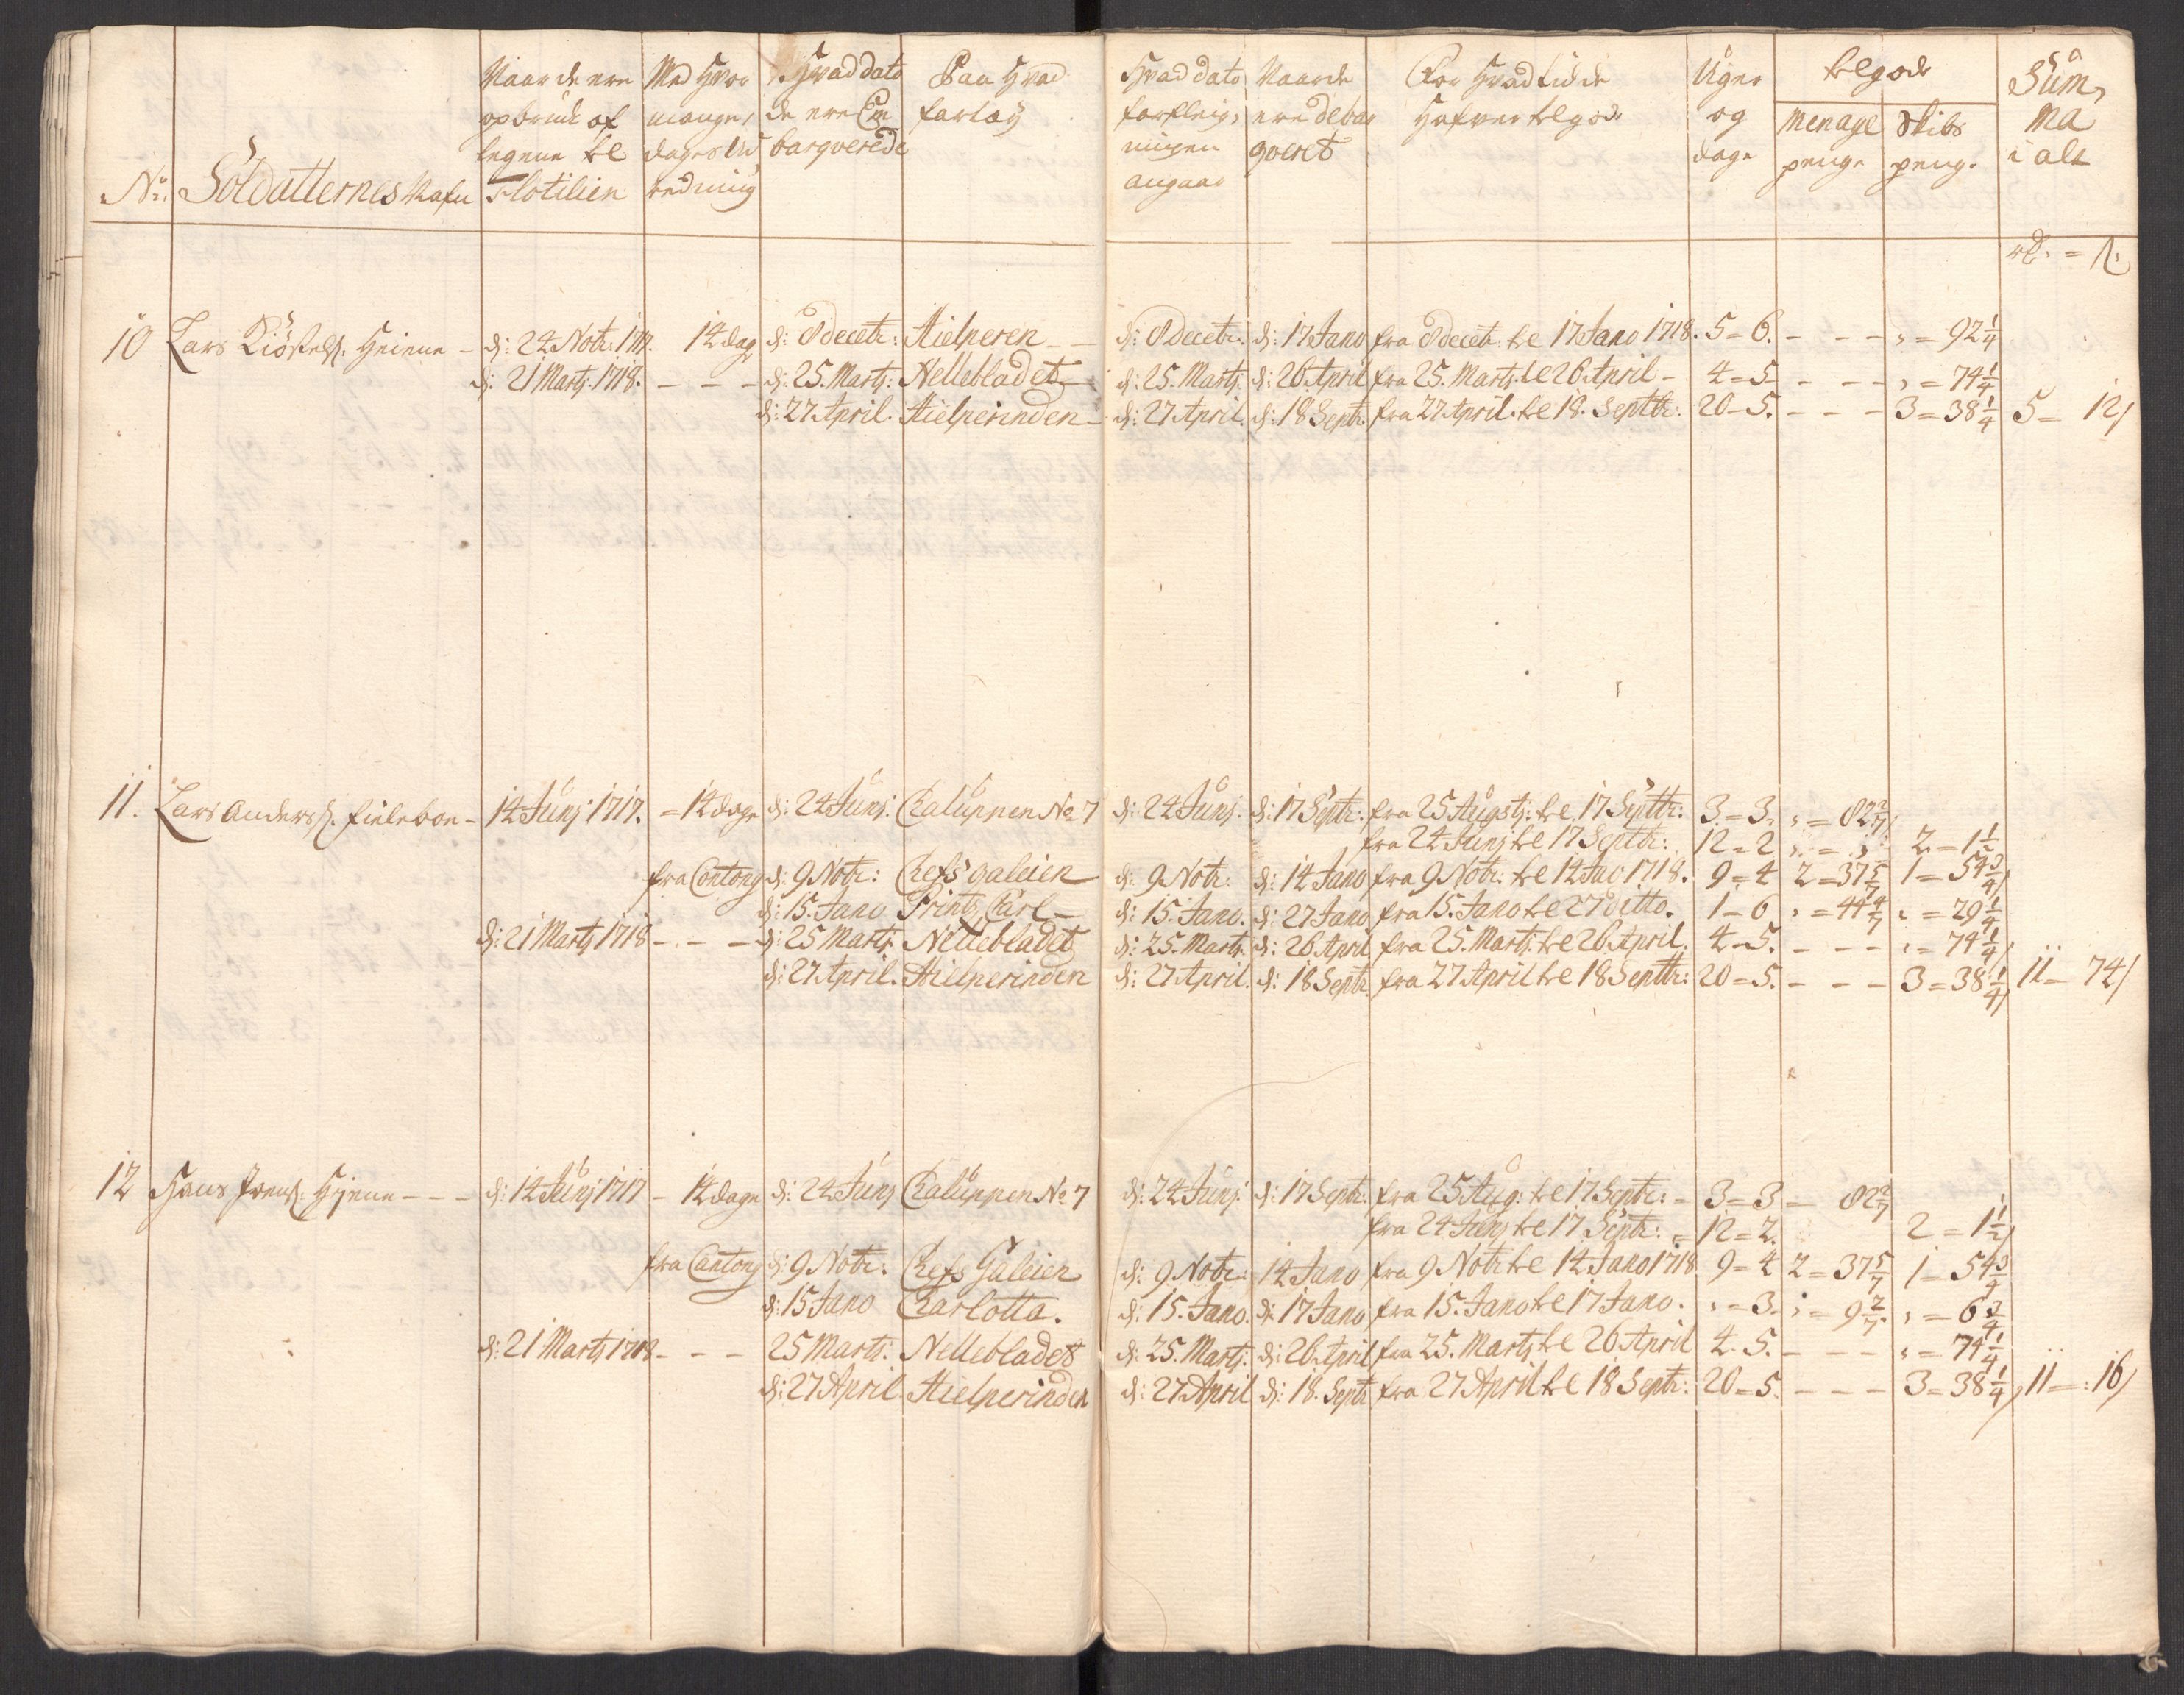 Naar de ere opbrudt af legene te Flotilien
Med Hvor mange dages
Hvad dato de ere Em barqverede
Paa Hvad fartøÿ
Hvad dato forpleigningen angaar
Naar de ere debarqveret
For Hvad tid de Hafver tegode
Uger og dage
tegode
Menage penge
Skibs penge
Summa i alt
No: Soldatternes Nafn
rd. = s.
10 Lars Heiene - d: 24 Notr: 1717. 14 dag d: 8 decetr: Hielperen - - d: 8 decetr: d: 17 Jano fra 8 decetr: te 17 Jano 1718. 5 = 6. - - - " = 92 1/4
d: 21 Martj 1718. - - - d: 25. Martj: Nellebladet d: 25. Martj. d: 26 April fra 25. Martj te 26 April - 4 = 5 - - - " = 74 1/4
d: 27 April. Hielperinden - d: 27 April. d: 18 Septr. fra 27 April. te 18. Septtr: 20 - 5. - - - 3 = 38 1/4 5 = 12/
11. Lars Anders: - 14 Junj 1717. = 14 dage d: 24 Junj. Chaluppen No 7 d: 24 Junj. d: 17 Septr: fra 25 Augstj: te 17 Septtr: 3 = 3. " = 82 2/7
fra 24 Junj te 17 Septtr: 12 = 2 " = " 2 = 1 1/2
fra Contong d: 9 Notr: Chefs galeien d: 9 Notr: d: 14 Jano fra 9 Notr: te 14 Jao 1718. 9 = 4 2 = 37 5/7 1 = 54 3/4
d: 15. Jano Prinds Carl - d: 15. Jano. d: 27 Jano fra 15. Jano te 27 ditto. 1 - 6 " = 44 4/7 " = 29 1/4
d: 21 Martj 1718 - - - d: 25 Martj. Nellebladet d: 25. Martj. d: 26 April fra 25. Martj. te 26 April. 4 - 5. - - - " = 74 1/4
d: 27 April. Hielperinden d: 27 April. d: 18 Septr. fra 27 April te 18 Septtr: 20 = 5. - - - 3 = 38 1/4 11 - 74/
12 Hans Hyene - - - d: 14 Junj 1717 - 14 dage d: 24 Junj Chaluppen No 7 d: 24 Junj. d: 17 Septr: fra 25 Aug: te 17 Septr: = 3 = 3 = 82 2/7
fra 24 Junj te 17 Septr: = 12 = 2. 2 = 1 1/2
fra Cantong d: 9 Notr: Chefs Galeien d: 9 Notr: 14 Jano fra 9 Notr te 14 Jano 1718 9 = 4 2 = 37 5/7 1 = 54 3/4
d: 15 Jano Charlotta. d: 15. Jano. d: 17 Jano fra 15. Jano te 17 Jano. " = 3. " = 9 2/7 " = 6 3/4
d: 21 Martj 1718 - - - 25 Martj. Nellebladet d: 25. Martj: d: 26 April fra 25. Martj te 26 April 4. 5. - - - " = 74 1/4
d: 27 April. Hielperinden d: 27 April d: 18. Septr fra 27 April te 18 Septr: 20 = 5. - - - 3 = 38 1/4 11 = 16/